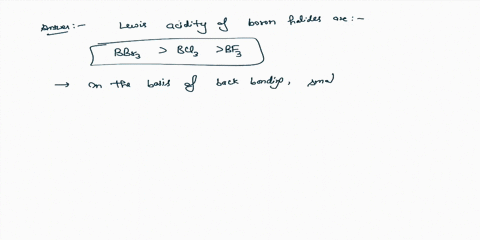 Answer:- Lewis acidity of boron halides are:-
BBr3 > BCl3 > BF3
→ On the basis of back bonding, smal